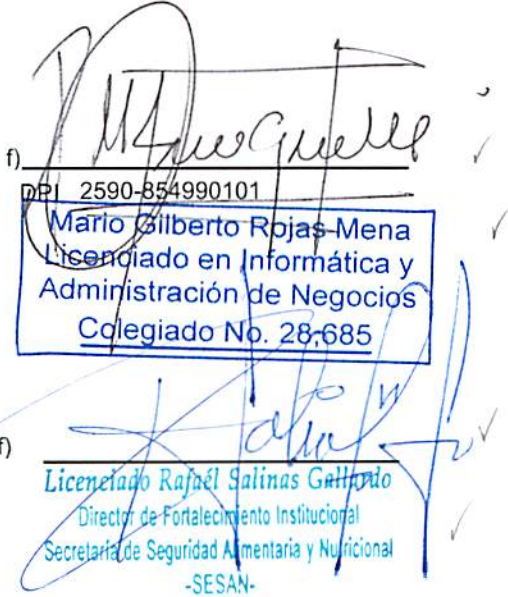 f)
DPI 2590-854990101
Mario Gilberto Rojas Mena
Licenciado en Informática y
Administración de Negocios
Colegiado No. 28,685
f)
Licenciado Rafaél Salinas Gallardo
Director de Fortalecimiento Institucional
Secretaría de Seguridad Alimentaria y Nutricional
-SESAN-